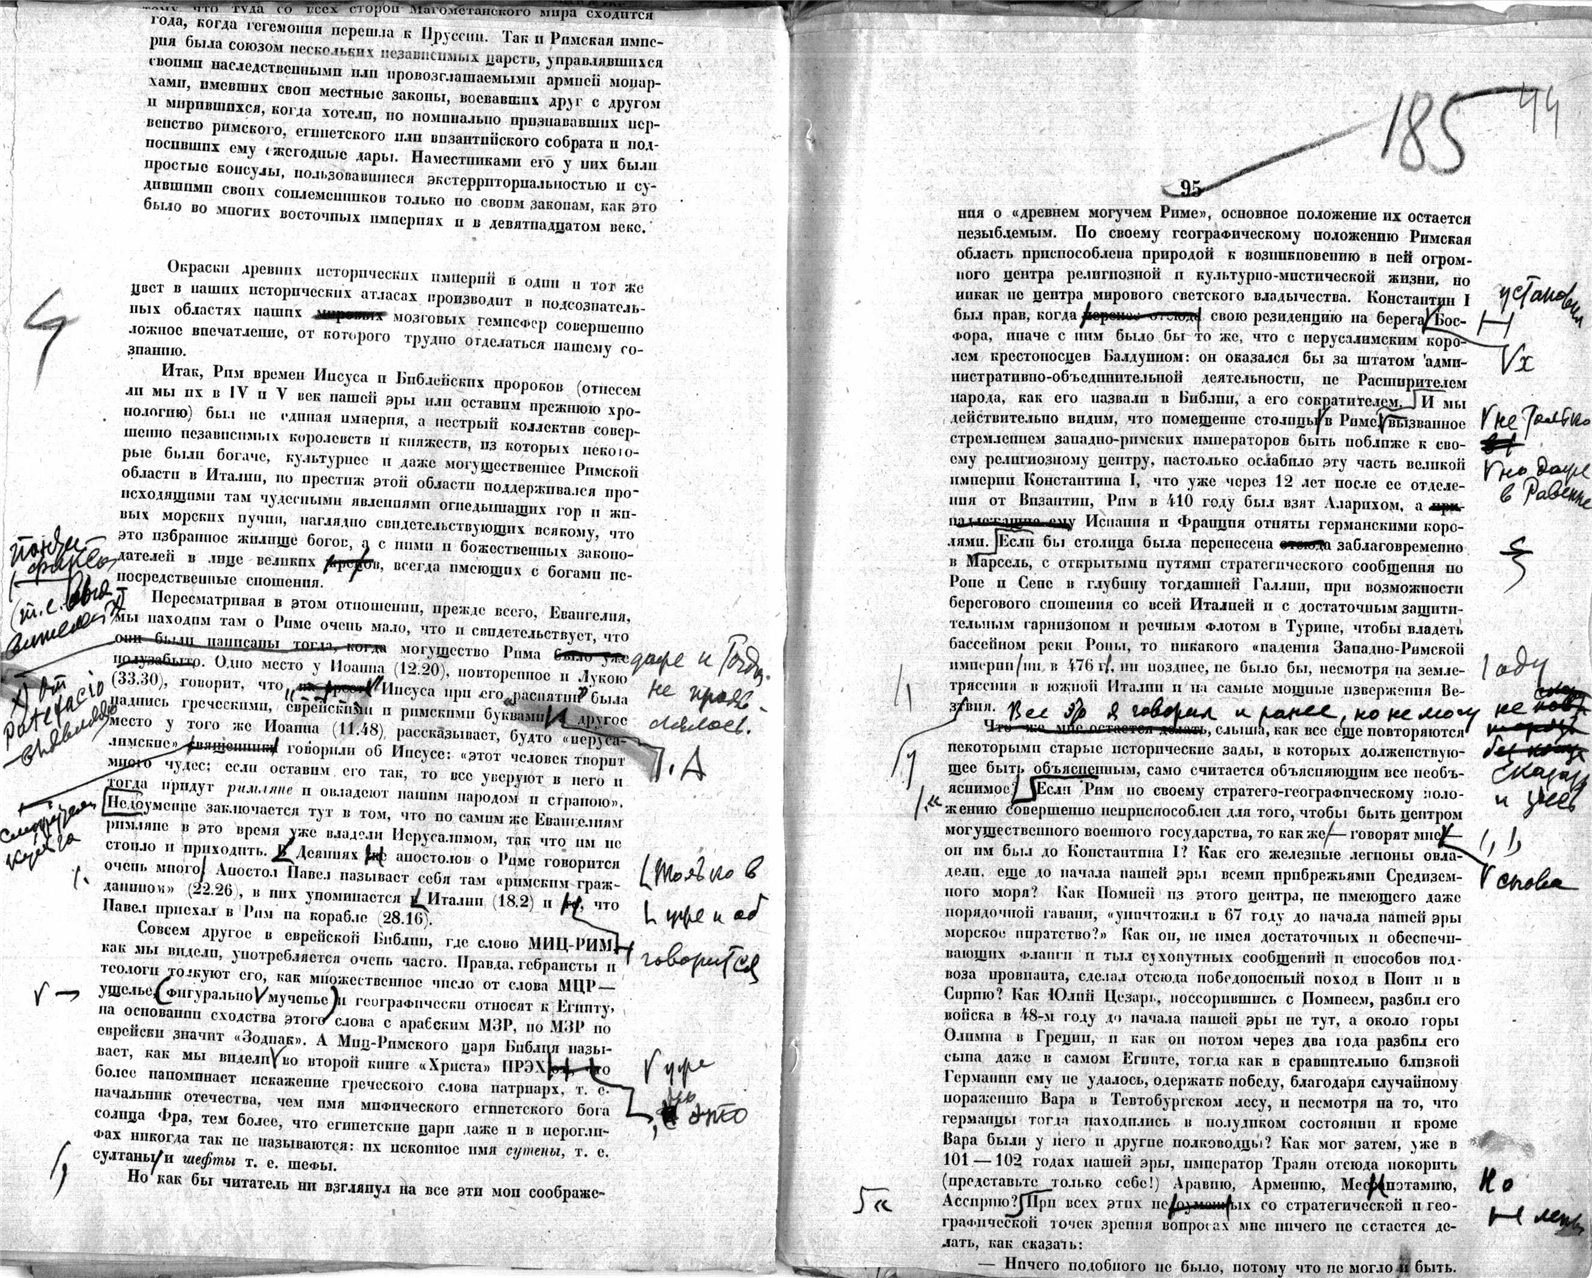 что туда со всех сторон Магометанского мира сходится
года, когда гегемония перешла к Пруссии. Так и Римская импе-
рия была союзом нескольких независимых царств, управлявшихся
своими наследственными или провозглашаемыми армией монар-
хами, имевших свои местные законы, воевавших друг с другом
и мирившихся, когда хотели, но номинально признававших пер-
венство римского, египетского или византийского собрата и под-
носивших ему ежегодные дары. Наместниками его у них были
простые консулы, пользовавшиеся экстерриториальностью и су-
дившими своих соплеменников только по своим законам, как это
было во многих восточных империях и в девятнадцатом веке.
Окраски древних исторических империй в один и тот же
цвет в наших исторических атласах производит в подсознатель-
ных областях наших мировых мозговых гемисфер совершенно
ложное впечатление, от которого трудно отделаться нашему со-
знанию.
Итак, Рим времен Иисуса и Библейских пророков (отнесем
ли мы их в IV и V век нашей эры или оставим прежнюю хро-
нологию) был не единая империя, а пестрый коллектив совер-
шенно независимых королевств и княжеств, из которых некото-
рые были богаче, культурнее и даже могущественнее Римской
области в Италии, но престиж этой области поддерживался про-
исходящими там чудесными явлениями огнедышащих гор и жи-
вых морских пучин, наглядно свидетельствующих всякому, что
это избранное жилище богов, а с ними и божественных законо-
дателей в лице великих , всегда имеющих с богами не-
посредственные сношения.
Пересматривая в этом отношении, прежде всего, Евангелия,
мы находим там о Риме очень мало, что и свидетельствует, что
они были написаны тогда, когда могущество Рима было уже
полузабыто. Одно место у Иоанна (12.20), повторенное и Лукою
(33.30), говорит, что Иисуса при его „распятии" была
надпись греческими, еврейскими и римскими буквами другое
место у того же Иоанна (11.48) рассказывает, будто «иеруса-
лимские» священники говорили об Иисусе: «этот человек творит
много чудес; если оставим его так, то все уверуют в него и
тогда придут римляне и овладеют нашим народом и страною».
Недоумение заключается тут в том, что по самим же Евангелиям
римляне в это время уже владели Иерусалимом, так что им не
стоило и приходить. В Деяниях же апостолов о Риме говорится
очень много Апостол Павел называет себя там «римским граж-
данином» (22.26), в них упоминается и Италии (18.2) и что
Павел приехал в Рим на корабле (28.16).
Совсем другое в еврейской Библии, где слово МИЦ-РИМ,
как мы видели, употребляется очень часто. Правда, гебраисты и
теологи толкуют его, как множественное число от слова МЦР—
ущелье, (фигурально мученье) и географически относят к Египту,
на основании сходства этого слова с арабским МЗР, но МЗР по
еврейски значит «Зодиак». А Миц-Римского царя Библия назы-
вает, как мы видели во второй книге «Христа» ПРЭХ
более напоминает искажение греческого слова патриарх, т. е.
начальник отечества, чем имя мифического египетского бога
солнца Фра, тем более, что египетские цари даже и в иерогли-
фах никогда так не называются: их исконное имя сутены, т. е.
султаны и шефты т. е. шефы.
Но как бы читатель ни взглянул на все эти мои соображе-
даже и тогда
не прояв-
лялось.
только в
уже и об
говорится
уже
это
185
44
95
ния о «древнем могучем Риме», основное положение их остается
незыблемым. По своему географическому положению Римская
область приспособлена природой к возникновению в ней огром-
ного центра религиозной и культурно-мистической жизни, но
никак не центра мирового светского владычества. Константин I
был прав, когда перенес отсюда свою резиденцию на берега Бос-
фора, иначе с ним было бы то же, что с иерусалимским коро-
лем крестоносцев Балдуином: он оказался бы за штатом адми-
нистративно-объединительной деятельности, не Расширителем
народа, как его назвали в Библии, а его сократителем. И мы
действительно видим, что помещение столицы в Риме вызванное
стремлением западно-римских императоров быть поближе к сво-
ему религиозному центру, настолько ослабило эту часть великой
империи Константина I, что уже через 12 лет после ее отделе-
ния от Византии, Рим в 410 году был взят Аларихом, а при-
надлежащие ему Испания и Франция отняты германскими коро-
лями. Если бы столица была перенесена отсюда заблаговременно
в Марсель, с открытыми путями стратегического сообщения по
Роне и Сене в глубину тогдашней Галлии, при возможности
берегового сношения со всей Италией и с достаточным защити-
тельным гарнизоном и речным флотом в Турине, чтобы владеть
бассейном реки Роны, то никакого «падения Западно-Римской
империи ни в 476 г., ни позднее, не было бы, несмотря на земле-
трясения в южной Италии и на самые мощные извержения Ве-
зувия. Все это я говорил и ранее, но не могу не
Что же мне остается делать, слыша, как все еще повторяются
некоторыми старые исторические зады, в которых долженствую-
щее быть объясненным, само считается объясняющим все необъ-
яснимое? Если Рим по своему стратего-географическому поло-
жению совершенно неприспособлен для того, чтобы быть центром
могущественного военного государства, то как же — говорят мне —
он им был до Константина I? Как его железные легионы овла-
дели, еще до начала нашей эры всеми прибрежьями Средизем-
ного моря? Как Помпей из этого центра, не имеющего даже
порядочной гавани, «уничтожил в 67 году до начала нашей эры
морское пиратство?» Как он, не имея достаточных и обеспечи-
вающих фланги и тыл сухопутных сообщений и способов под-
воза провианта, сделал отсюда победоносный поход в Понт и в
Сирию? Как Юлий Цезарь, поссорившись с Помпеем, разбил его
войска в 48-м году до начала нашей эры не тут, а около горы
Олимпа в Греции, и как он потом через два года разбил его
сына даже в самом Египте, тогда как в сравнительно близкой
Германии ему не удалось, одержать победу, благодаря случайному
поражению Вара в Тевтобургском лесу, и несмотря на то, что
германцы тогда находились в полудиком состоянии и кроме
Вара были у него и другие полководцы? Как мог затем, уже в
101—102 годах нашей эры, император Траян отсюда покорить
(представьте только себе!) Аравию, Армению, Месопотамию,
Ассирию? При всех этих недоуменных со стратегической и гео-
графической точек зрения вопросах мне ничего не остается де-
лать, как сказать:
— Ничего подобного не было, потому что не могло и быть.
установил
не только
но даже
в Равенне
оду
сказать
и здесь
снова
но